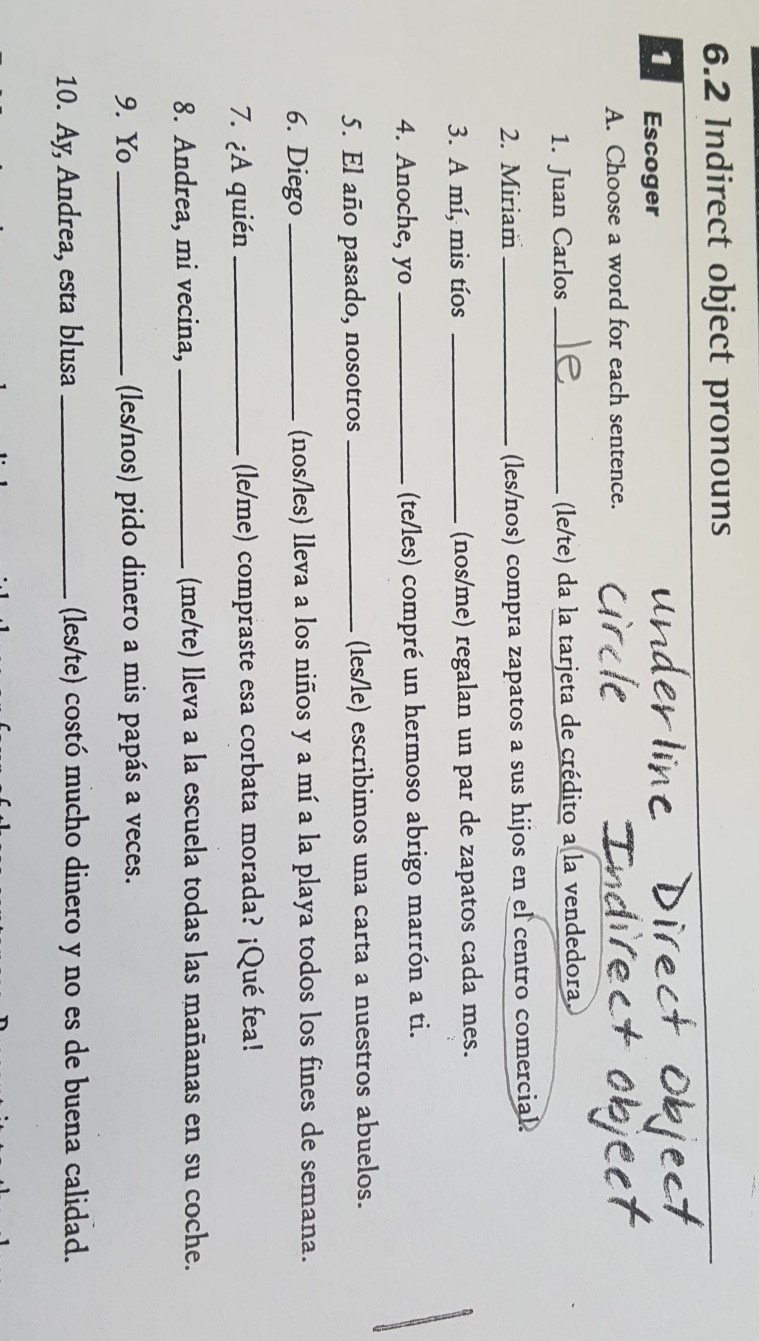 6.2 Indirect object pronouns
1 Escoger
underline Direct object
A. Choose a word for each sentence.
circle Indirect object
1. Juan Carlos le (le/te) da la tarjeta de crédito a la vendedora.
2. Miriam ________ (les/nos) compra zapatos a sus hijos en el centro comercial.
3. A mí, mis tíos ________ (nos/me) regalan un par de zapatos cada mes.
4. Anoche, yo ________ (te/les) compré un hermoso abrigo marrón a ti.
5. El año pasado, nosotros ________ (les/le) escribimos una carta a nuestros abuelos.
6. Diego ________ (nos/les) lleva a los niños y a mí a la playa todos los fines de semana.
7. ¿A quién ________ (le/me) compraste esa corbata morada? ¡Qué fea!
8. Andrea, mi vecina, ________ (me/te) lleva a la escuela todas las mañanas en su coche.
9. Yo ________ (les/nos) pido dinero a mis papás a veces.
10. Ay, Andrea, esta blusa ________ (les/te) costó mucho dinero y no es de buena calidad.